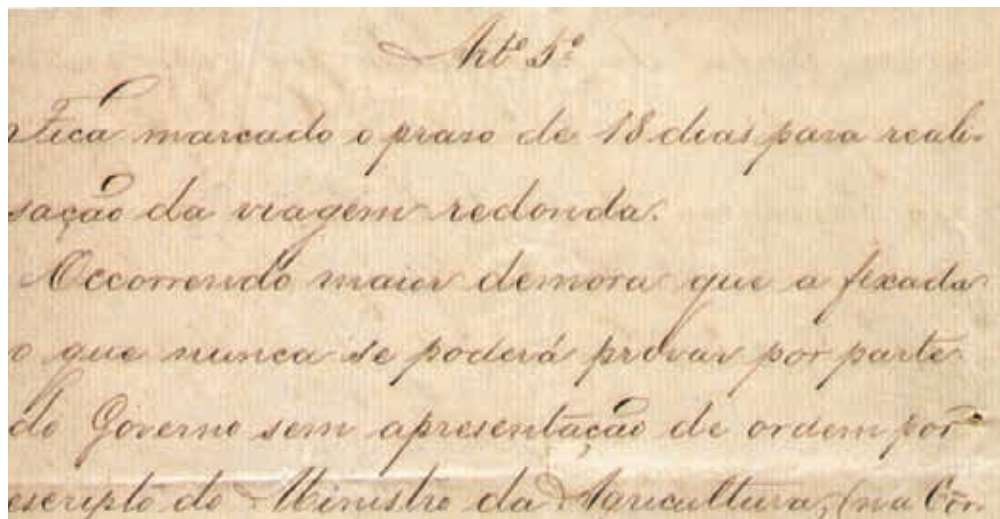 Art.º 5.º
Fica marcado o praso de 18 dias para reali-
sação da viagem redonda.
Occorrendo maior demora que a fixada
o que nunca se poderá provar por parte
do Governo sem apresentação de ordem por
escripto do Ministro da Agricultura, (na Côr-